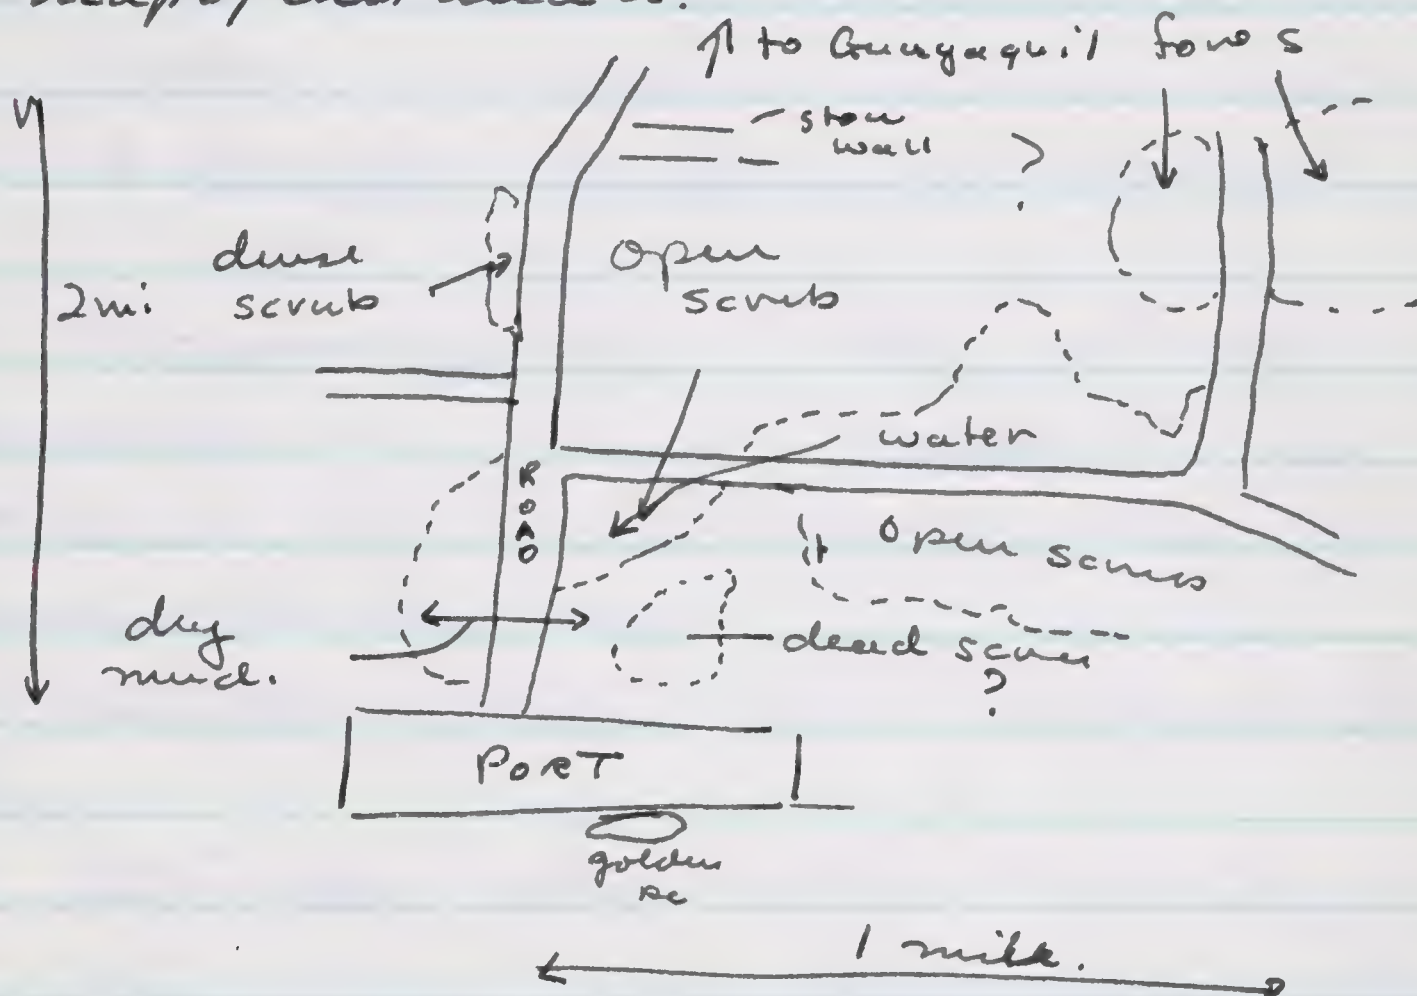 ↑ to Guayaquil
stone
wall
?
dense
scrub
open
scrub
2 mi
water
ROAD
open scrub
dry
mud.
dead scrub
?
PORT
golden
1 mile.